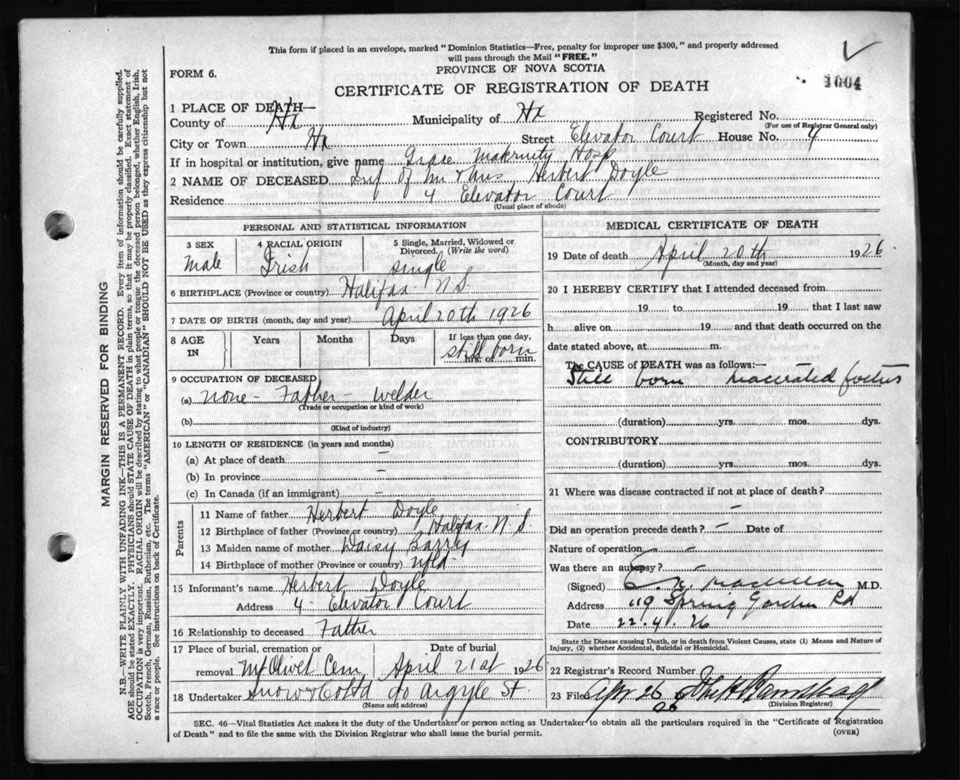 This form if placed in an envelope, marked "Dominion Statistics—Free, penalty for improper use $300," and properly addressed
will pass through the Mail "FREE."
PROVINCE OF NOVA SCOTIA
FORM 6.
1004
CERTIFICATE OF REGISTRATION OF DEATH
1 PLACE OF DEATH—
County of Hx Municipality of Hx Registered No.
(For use of Registrar General only)
City or Town Hx Street Elevator Court House No. 4
If in hospital or institution, give name Grace Maternity Hosp
2 NAME OF DECEASED Inf of Mr & Mrs Herbert Doyle
Residence 4 Elevator Court
(Usual place of abode)
PERSONAL AND STATISTICAL INFORMATION
3 SEX 4 RACIAL ORIGIN 5 Single, Married, Widowed or
Divorced. (Write the word)
Male Irish Single
6 BIRTHPLACE (Province or country) Halifax N.S.
7 DATE OF BIRTH (month, day and year) April 20th 1926
8 AGE IN Years Months Days If less than one day,
still born hrs. or min.
9 OCCUPATION OF DECEASED
(a) None - Father - Welder
(Trade or occupation or kind of work)
(b)
(Kind of industry)
10 LENGTH OF RESIDENCE (in years and months)
(a) At place of death —
(b) In province —
(c) In Canada (if an immigrant) —
Parents
11 Name of father Herbert Doyle
12 Birthplace of father (Province or country) Halifax N.S.
13 Maiden name of mother Daisy Barry
14 Birthplace of mother (Province or country) Nfld
15 Informant's name Herbert Doyle
Address 4 - Elevator Court
16 Relationship to deceased Father
17 Place of burial, cremation or Date of burial
removal Mt Olivet Cem April 21st 1926
18 Undertaker Snow & Co Ltd Argyle St.
(Name and address)
MEDICAL CERTIFICATE OF DEATH
19 Date of death April 20th 1926
(Month, day and year)
20 I HEREBY CERTIFY that I attended deceased from
19 to 19 that I last saw
h alive on 19 and that death occurred on
the date stated above, at m.
The CAUSE OF DEATH was as follows:—
Still born macerated foetus
(duration) yrs. mos. dys.
CONTRIBUTORY
(duration) yrs. mos. dys.
21 Where was disease contracted if not at place of death?
—
Did an operation precede death? — Date of
Nature of operation —
Was there an autopsy? —
(Signed) M.D.
Address 119 Spring Garden Rd
Date 22.4.26
State the Disease causing Death, or in death from Violent Causes, state (1) Means and Nature
of Injury, (2) whether Accidental, Suicidal or Homicidal.
22 Registrar's Record Number
23 Filed Apr 26
26
(Division Registrar)
SEC. 46—Vital Statistics Act makes it the duty of the Undertaker or person acting as Undertaker to obtain all the particulars required in the "Certificate of Registration
of Death" and to file the same with the Division Registrar who shall issue the burial permit.
(OVER)
MARGIN RESERVED FOR BINDING
N.B.—WRITE PLAINLY WITH UNFADING INK—THIS IS A PERMANENT RECORD. Every item of information should be carefully supplied.
AGE should be stated EXACTLY. PHYSICIANS should STATE CAUSE OF DEATH in plain terms, so that it may be properly classified. Exact statement of
OCCUPATION is very important. RACIAL ORIGIN will be described by stating to what people or tongue the deceased person belonged, whether English, Irish,
Scotch, French, German, Russian, Ruthenian, etc. The terms "AMERICAN" or "CANADIAN" SHOULD NOT BE USED as they express citizenship but not
a race or people. See instructions on back of Certificate.